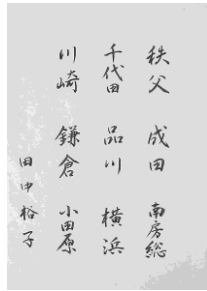 秩父 成田 南房総
千代田 品川 横浜
川崎 鎌倉 小田原
田中裕子